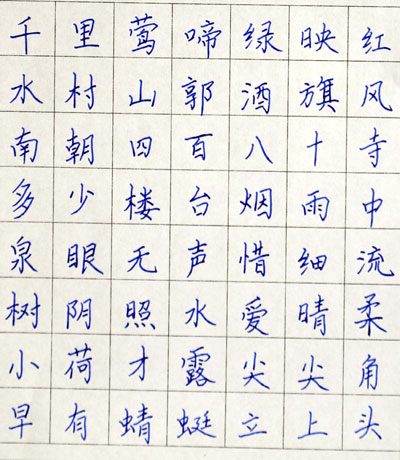 千里莺啼绿映红
水村山郭酒旗风
南朝四百八十寺
多少楼台烟雨中
泉眼无声惜细流
树阴照水爱晴柔
小荷才露尖尖角
早有蜻蜓立上头